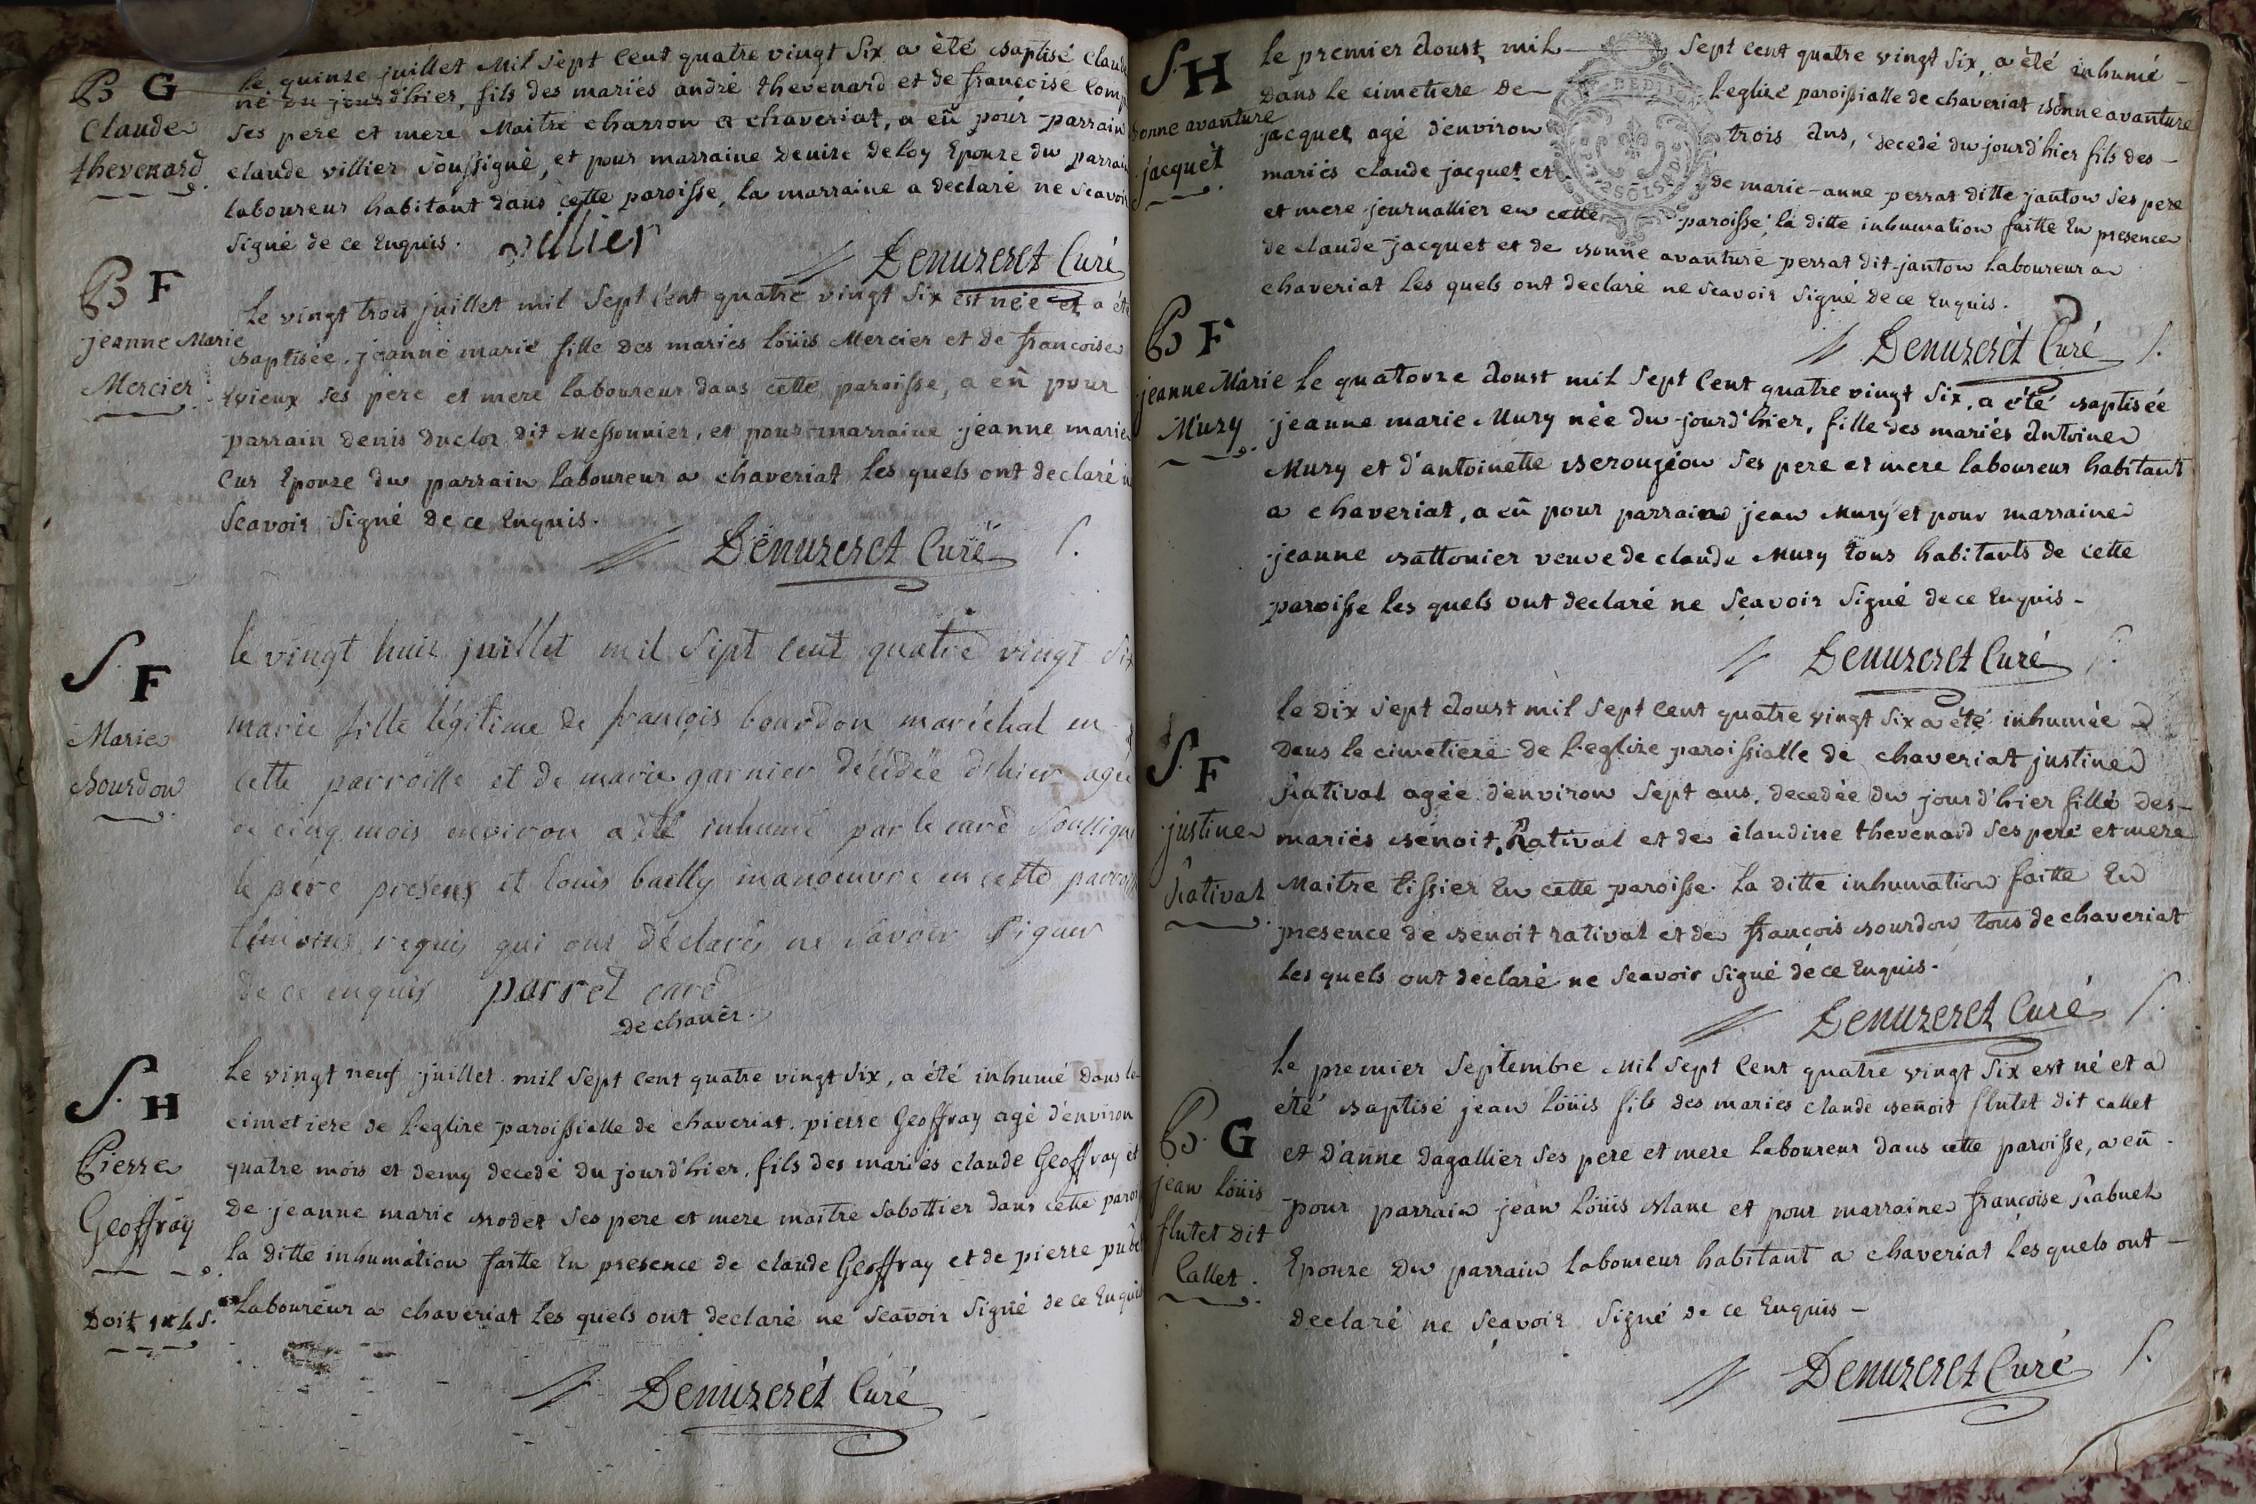 B G
Claude
thevenard
le quinze juillet Mil Sept Cent quatre vingt Six a été baptisé Claude
né du jourd'hier, fils des mariés andré thevenard et de francoise Comp
Ses pere et mere Maitre charron a chaveriat, a eû pour parrain
claude villier Soussigné, et pour marraine Denise Deloy Epouze du parrain
laboureur habitant dans cette paroisse, la marraine a declaré ne Scavoir
Signé de ce Enquis. villier
Denuzeret Curé
B F
jeanne Marie
Mercier
Le vingt trois juillet mil Sept Cent quatre vingt Six est née et a été
baptisée jeanne marie fille des mariés loüis Mercier et de francoise
vieux Ses pere et mere laboureur dans cette paroisse, a eû pour
parrain denis Duclor dit Messonnier, et pour marraine jeanne marie
Cur Epouze du parrain laboureur a chaveriat les quels ont declaré ne
Scavoir Signé de ce Enquis.
Denuzeret Curé
S. F
Marie
Bourdon
le vingt huit juillet mil Sept cent quatre vingt Six
marie fille légitime de françois bourdon maréchal en
cette parroisse et de marie garnier décédée d'hier agée
de cinq mois environ a été inhumé par le curé Soussigné
le père present et louis bailly manoeuvre en cette parroisse
témoins requis qui ont déclarés ne savoir Signer
de ce enquis parret curé
de chaver.
S. H
Pierre
Geoffray
Doit 1# 4 S.
Le vingt neuf juillet mil Sept Cent quatre vingt Six, a été inhumé dans le
cimetiere de l'eglize paroissialle de chaveriat, pierre Geoffray agé d'environ
quatre mois et demy decedé du jourd'hier, fils des mariés claude Geoffray et
de jeanne marie Brodet Ses pere et mere maitre Sabottier dans cette paroi
la ditte inhumation faitte En presence de claude Geoffray et de pierre pub
Laboureur a chaveriat les quels ont declaré ne Scavoir Signé de ce Enquis
Denuzerét Curé
S. H
Bonne avanture
jacquet
le premier Aoust mil Sept cent quatre vingt Six, a été inhumé
Dans le cimetiere De l'eglize paroissialle de chaveriat Bonne avanture
jacquet agé d'environ trois Ans, decedé du jourd'hier fils des
mariés claude jacquet et de marie-anne perrat ditte janton Ses pere
et mere journallier en cette paroisse, la ditte inhumation faitte En presence
de claude jacquet et de Bonne avanture perrat dit janton laboureur a
chaveriat Les quels ont declaré ne Scavoir Signé de ce Enquis.
Denuzerèt Curé
B F
jeanne Marie
Mury
Le quatorze Aoust mil Sept Cent quatre vingt Six, a été baptisée
jeanne marie Mury née du jourd'hier, fille des mariés Antoine
Mury et d'antoinette Berougeon Ses pere et mere laboureur habitant
a chaveriat, a eû pour parrain jean Mury et pour marraine
jeanne Battonier veuve de claude Mury tous habitants de cette
paroisse les quels ont declaré ne Scavoir Signé de ce Enquis -
Denuzeret Curé
S. F
justine
Rativat
le Dix Sept Aoust mil Sept Cent quatre vingt Six a été inhumée
Dans le cimetiere de l'eglize paroissialle de chaveriat justine
Rativat agée d'environ Sept ans, decedée du jourd'hier fille des
mariés Benoit Rativat et de claudine thevenard Ses pere et mere
Maitre tissier En cette paroisse. La ditte inhumation faitte En
presence de Benoit rativat et de françois Bourdon tous de chaveriat
Les quels ont declaré ne Scavoir Signé de ce Enquis.
Denuzeret Curé
B. G
jean Loüis
flutet Dit
Callet.
le premier Septembre Mil Sept Cent quatre vingt Six est né et a
été baptisé jean loüis fils des mariés claude Benoit flutet dit callet
et d'anne Dagallier Ses pere et mere laboureur dans cette paroisse, a eû
pour parrain jean loüis Blanc et pour marraine francoise Rabuel
Epouze du parrain laboureur habitant a chaveriat les quels ont
declaré ne Scavoir Signé de ce Enquis -
Denuzeret Curé